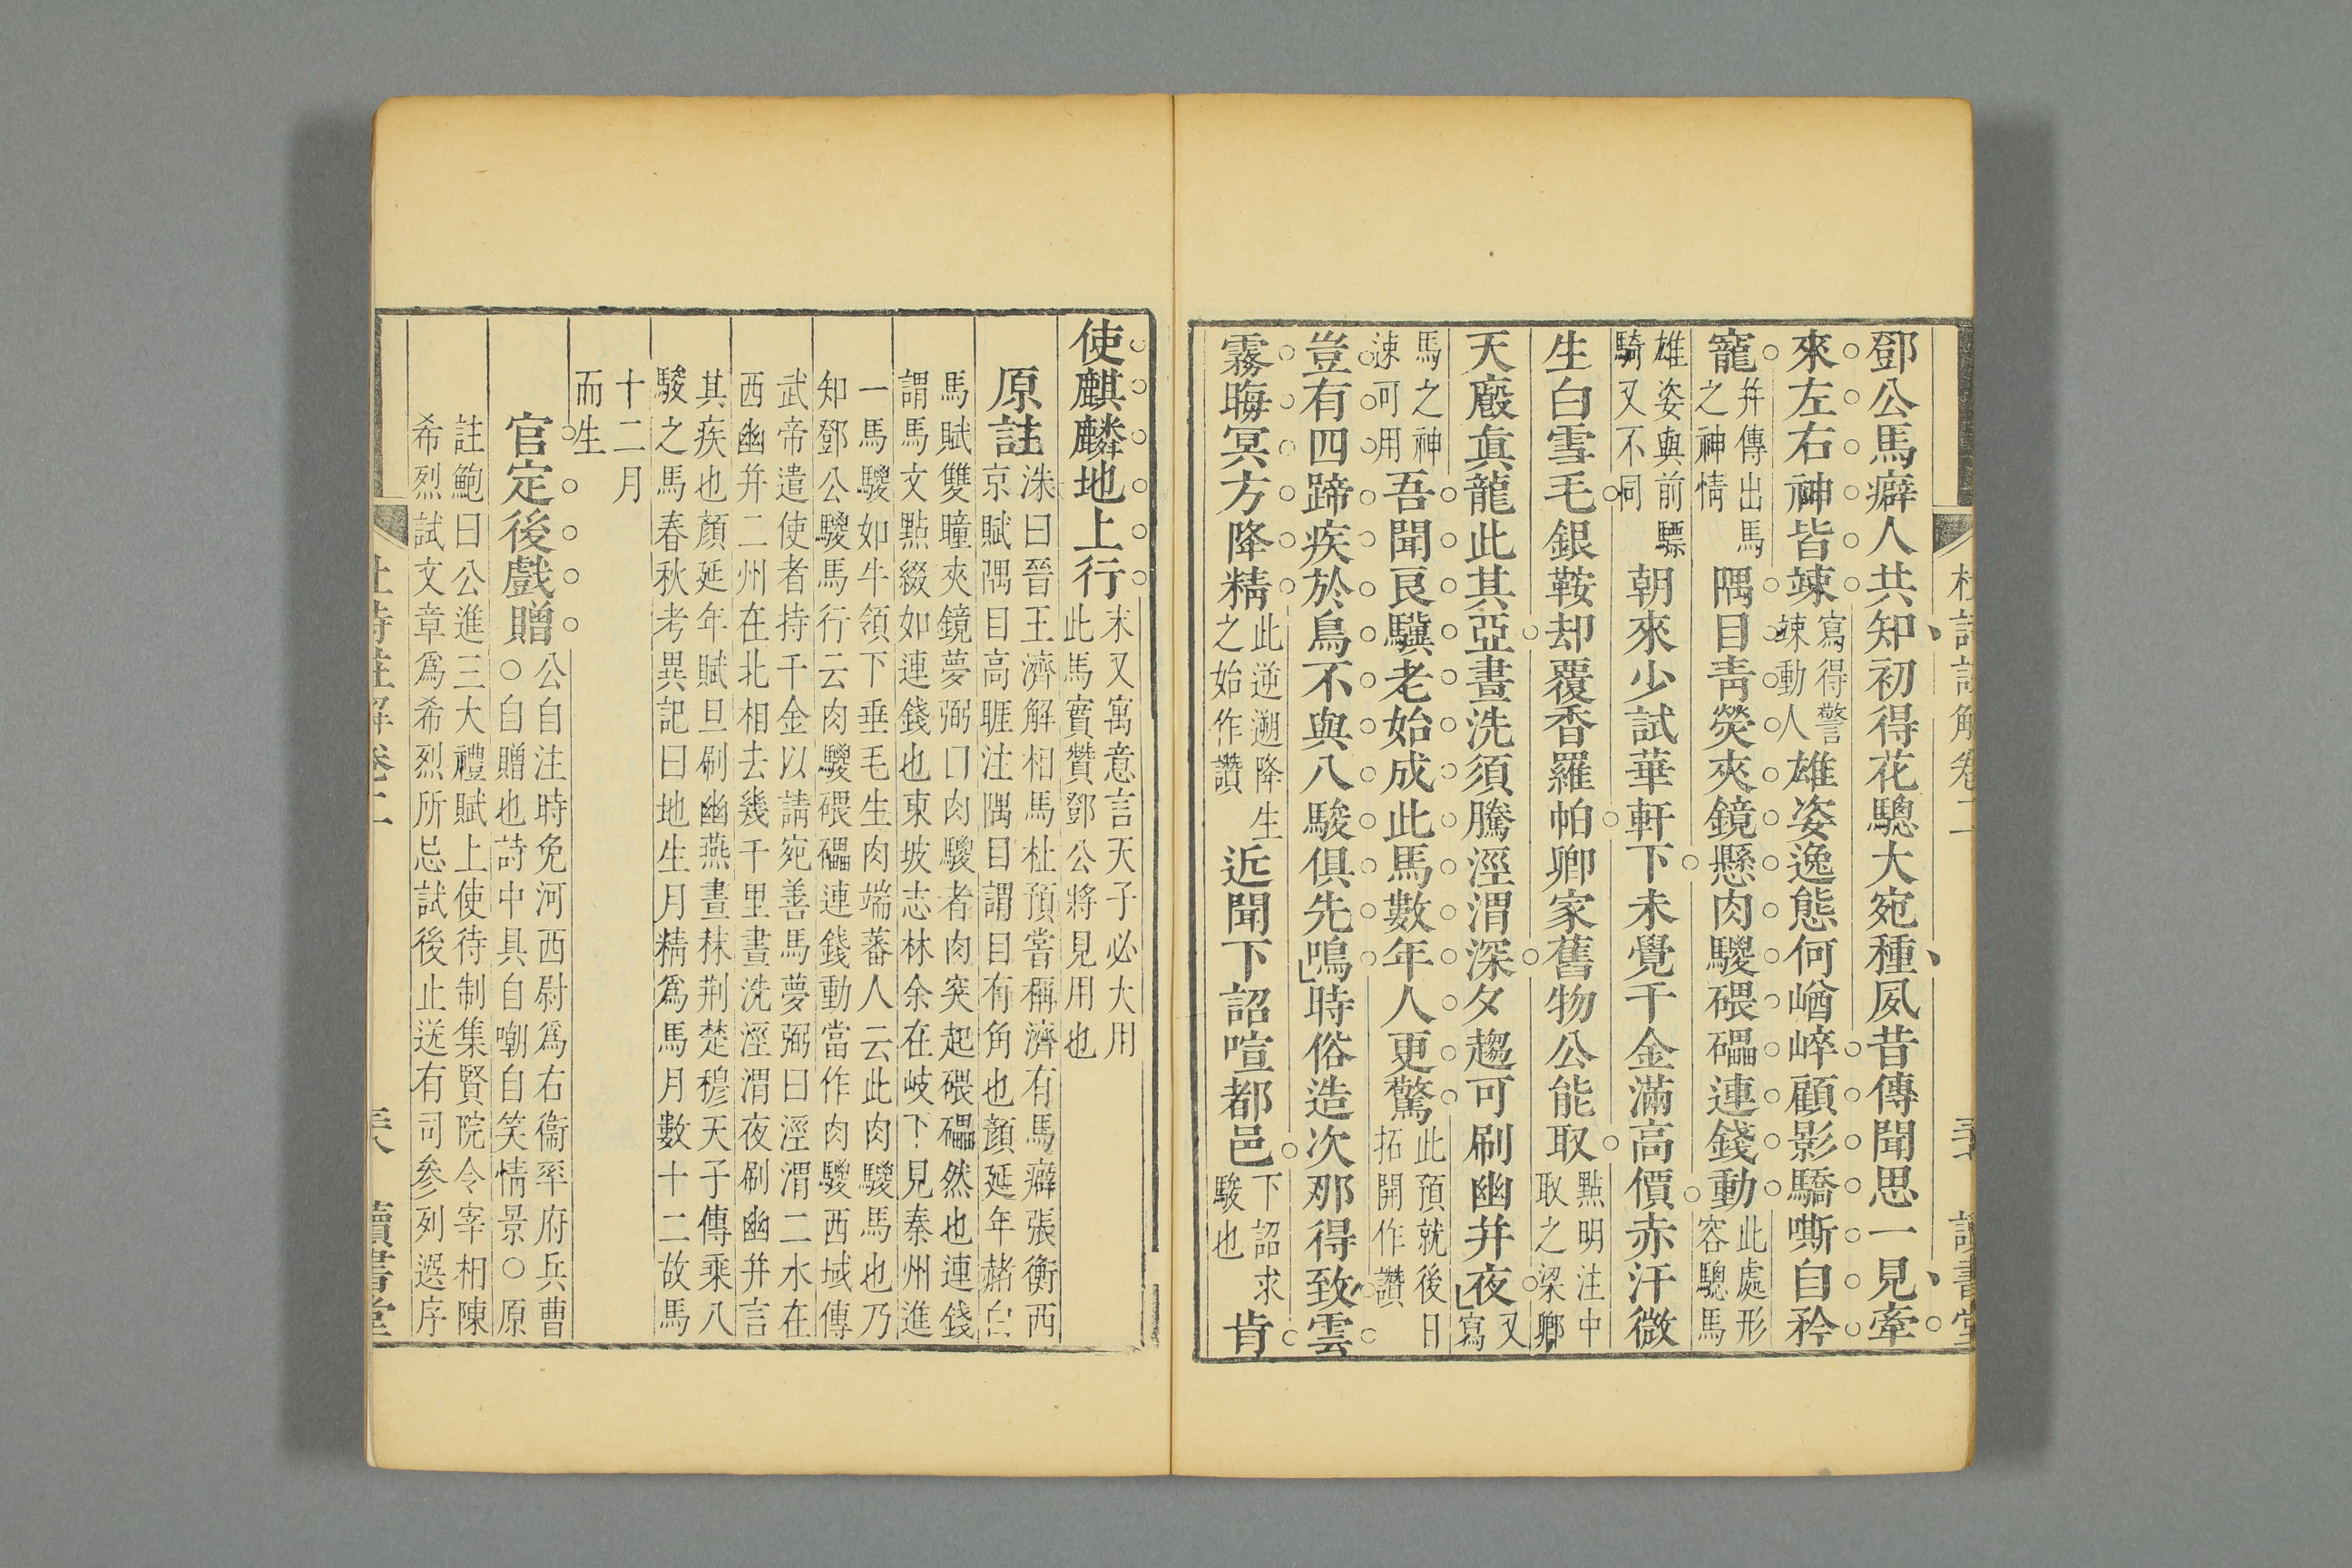 鄧公馬癖人共知初得花驄大宛種夙昔傳聞思一見牽
來左右神皆竦寫得警竦動人雄姿逸態何崷崒顧影驕嘶自矜
寵并傳出馬之神情隅目青熒夾鏡懸肉騣碨礧連錢動此處形容驄馬
雄姿與前驃騎又不同朝來少試華軒下未覺千金滿高價赤汗微
生白雪毛銀鞍却覆香羅帕卿家舊物公能取點明注中取之梁卿
天廄真龍此其亞晝洗須騰涇渭深夕趨可刷幽并夜又寫
馬之神速可用吾聞良驥老始成此馬數年人更驚此預就後日拓開作讚
豈有四蹄疾於鳥不與八駿俱先鳴時俗造次那得致雲
霧晦冥方降精此逆遡降生之始作讚近聞下詔喧都邑下詔求駿也肯
使麒麟地上行末又寓意言天子必大用此馬實贊鄧公將見用也
原註洙曰晉王濟解相馬杜預嘗稱濟有馬癖張衡西京賦隅目高眶注隅目謂目有角也顏延年赭白
馬賦雙瞳夾鏡夢弼曰肉騣者肉突起碨礧然也連錢
謂馬文點綴如連錢也東坡志林余在岐下見秦州進
一馬騣如牛領下垂毛生肉端蕃人云此肉騣馬也乃
知鄧公騣馬行云肉騣碨礧連錢動當作肉騣西域傳
武帝遣使者持千金以請宛善馬夢弼曰涇渭二水在
西幽并二州在北相去幾千里晝洗涇渭夜刷幽并言
其疾也顏延年賦旦刷幽燕晝秣荆楚穆天子傳乘八
駿之馬春秋考異記曰地生月精爲馬月數十二故馬
十二月
而生
官定後戲贈公自注時免河西尉爲右衛率府兵曹○自贈也詩中具自嘲自笑情景○原
註鮑曰公進三大禮賦上使待制集賢院令宰相陳
希烈試文章爲希烈所忌試後止送有司參列選序
讀書堂